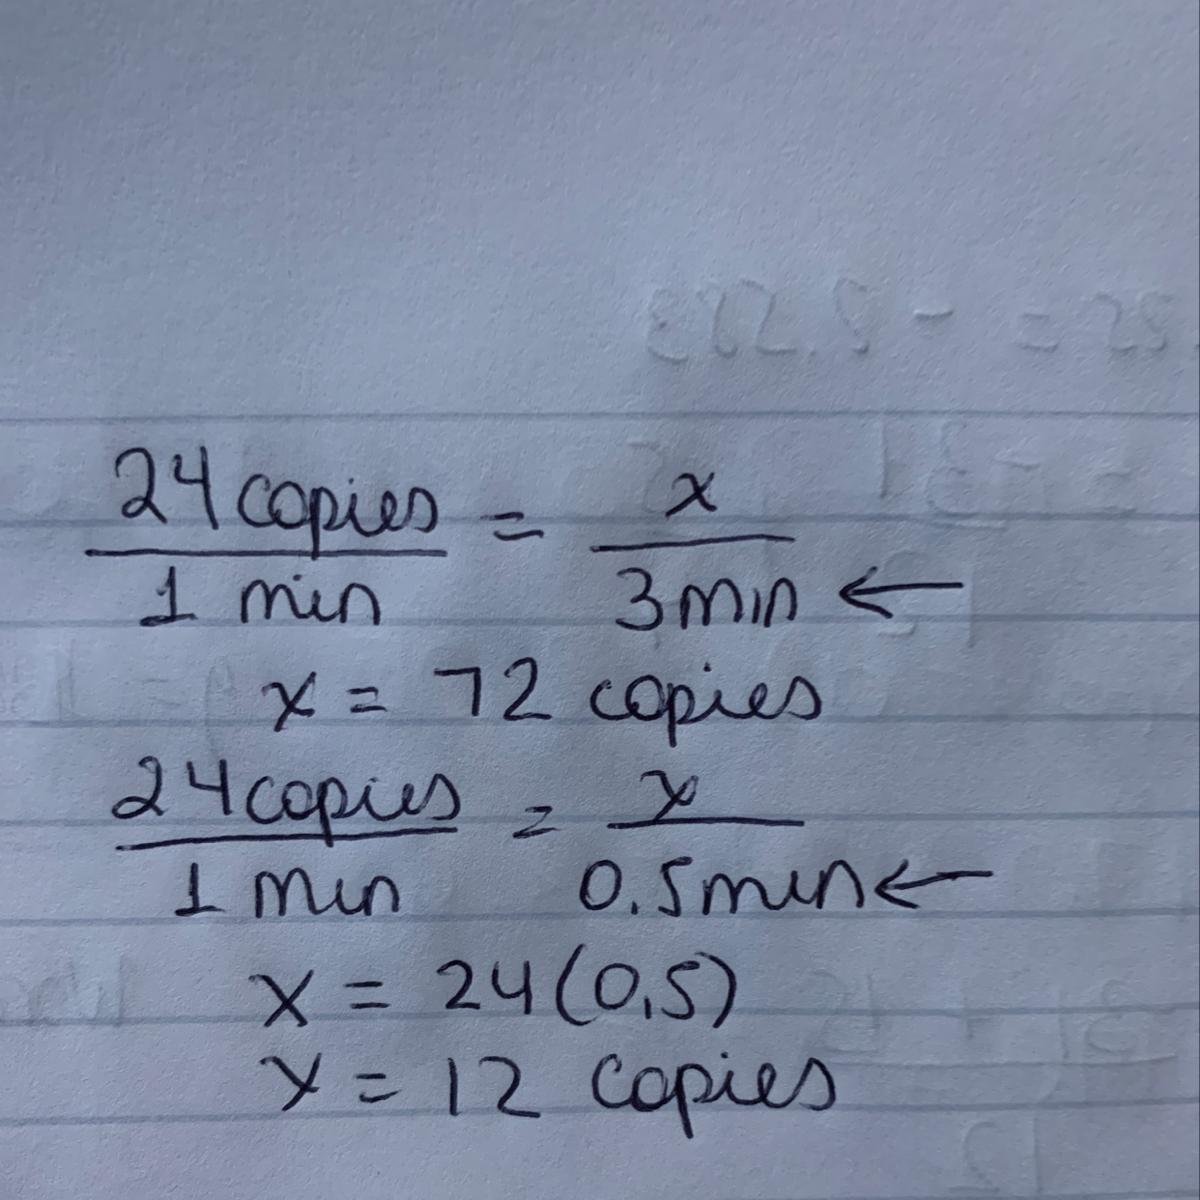 24 copies = x
1 min 3 min ←
x = 72 copies
24 copies = x
1 min 0.5 min ←
x = 24(0.5)
x = 12 copies